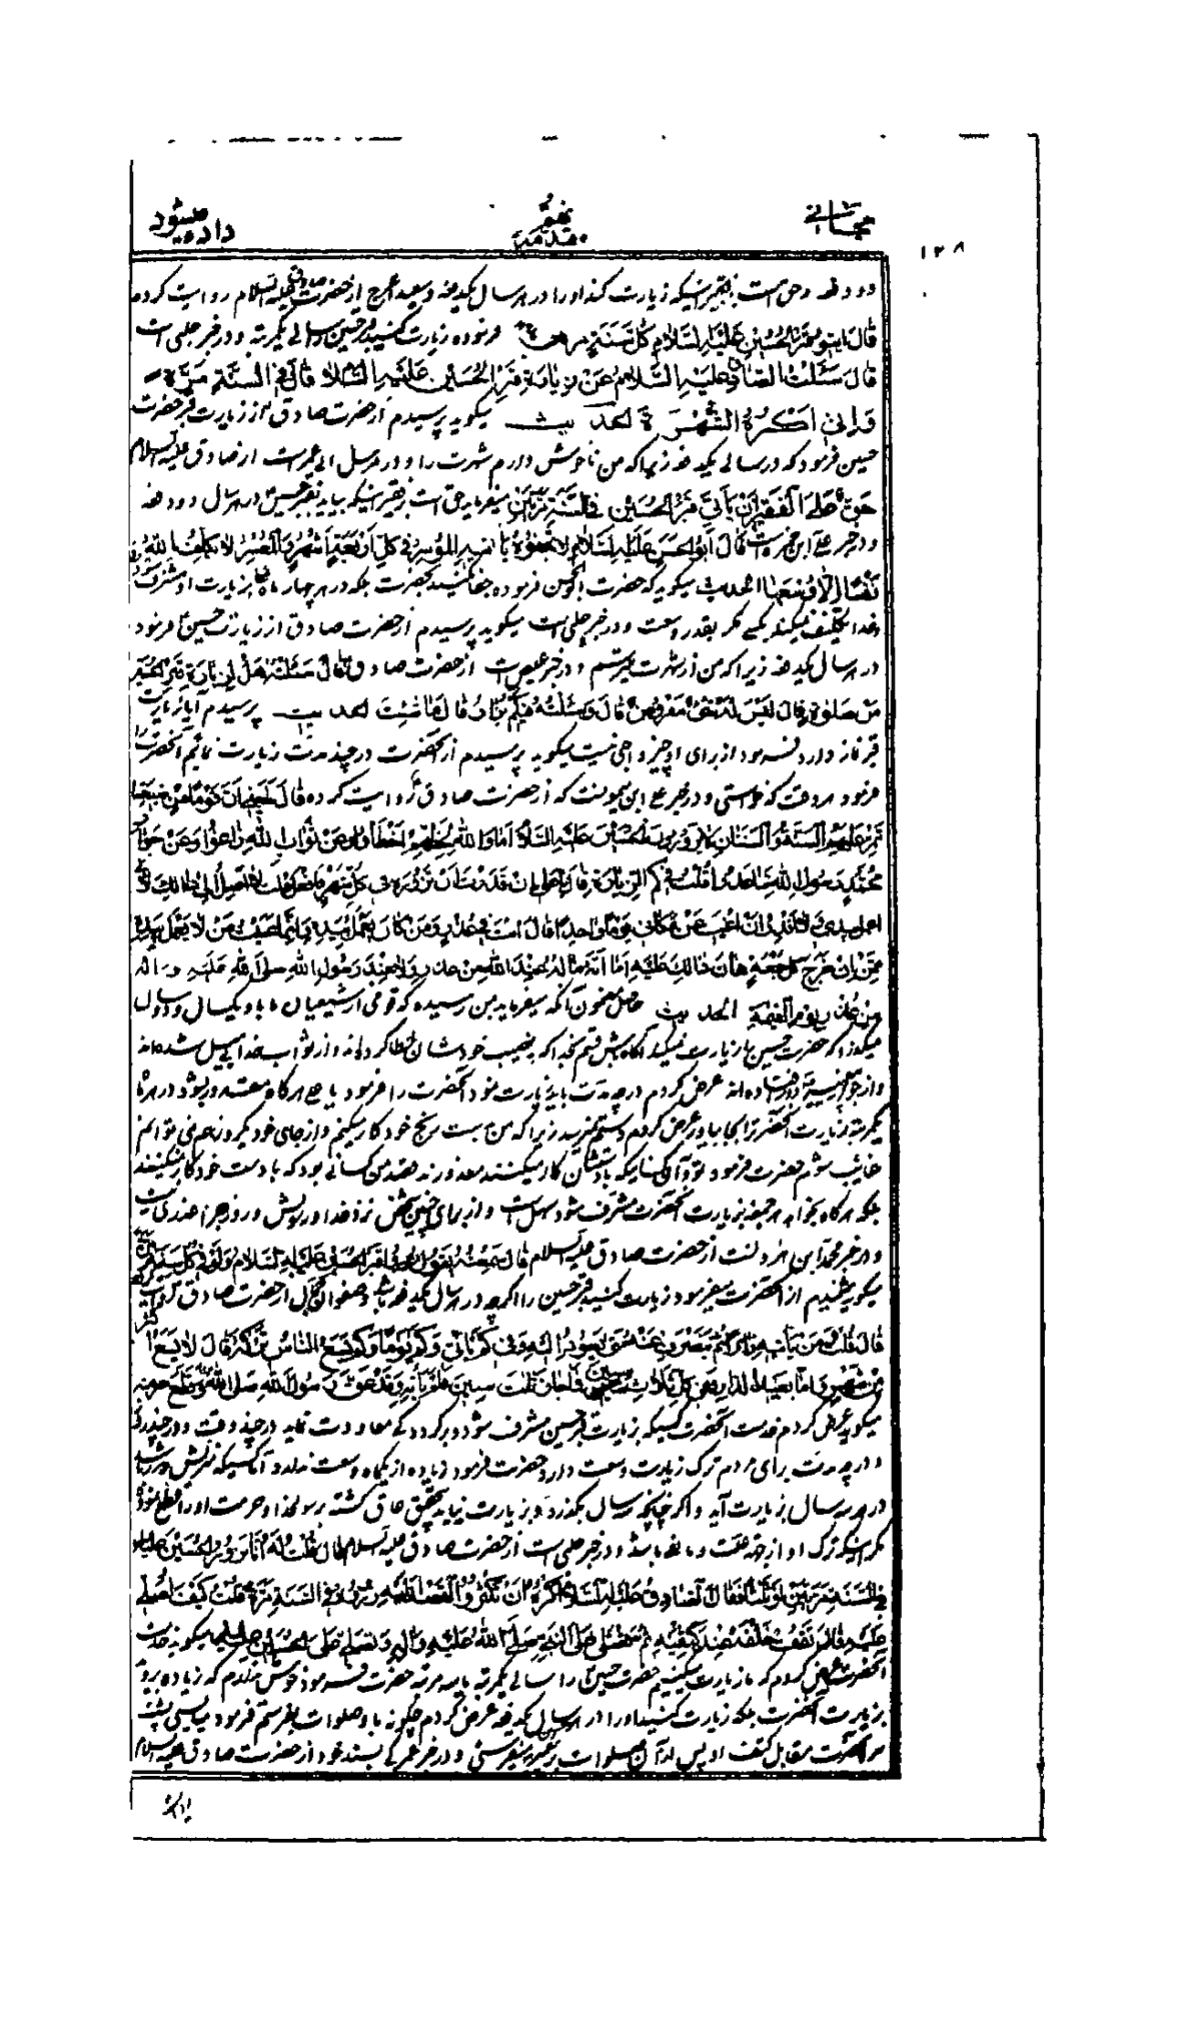 داده میشود
مقدمه
۱۲۸
دو دفعه و حق است بفقیر اینکه زیارت کند او را در هر سال یکدفعه و سعید اعرج از حضرت صادق علیه السلام روایت کرده
قَالَ ایتوا قَبْرَ الْحُسَیْنِ عَلَیْهِ السَّلَامُ کُلَّ سَنَةٍ مرة فرموده زیارت کنید قبر حسین را سالی یکمرتبه و در خبر حلبی است
قَالَ سَئَلْتُ الصَّادِقَ عَلَیْهِ السَّلَامُ عَنْ زِیَارَةِ قَبْرِ الْحُسَیْنِ عَلَیْهِ السَّلَامُ قَالَ فِی السَّنَةِ مَرَّةً
وَاِنِّی اَکْرَهُ الشُّهْرَةَ الحدیث میگوید پرسیدم از حضرت صادق از زیارت قبر حضرت
حسین فرمود که در سالی یکدفعه زیرا که من ناخوش دارم شهرت را و در مرسل ابی عمیر است از صادق علیه السلام
حَقٌّ عَلَی الْفَقِیرِ اَنْ یَأْتِیَ قَبْرَ الْحُسَیْنِ فِی السَّنَةِ مَرَّتَیْنِ میفرماید حق است بر فقیر اینکه بیاید بقبر حسین در هر سال دو دفعه
و در خبر علی ابن حمزه است قَالَ اَبُو الْحَسَنِ عَلَیْهِ السَّلَامُ لَا تَجْفُوهُ یَأْتِیهِ الْمُوسِرُ فِی کُلِّ اَرْبَعَةِ اَشْهُرٍ وَالْمُعْسِرُ لَا یُکَلِّفُ اللّٰهُ
نَفْسًا اِلَّا وُسْعَهَا الحدیث میگوید که حضرت ابوالحسن فرموده جفا نکنید بحضرت بلکه در هر چهار ماه بزیارت او مشرف
خدا تکلیف نمیکند کسی مگر بقدر وسعت و در خبر حلبی است میگوید پرسیدم از حضرت صادق از زیارت حسین فرمود
در هر سال یکدفعه زیرا که من از شهرت میترسم و در خبر عیص است از حضرت صادق قال سَئَلْتُهُ هَلْ لِزِیَارَةِ قَبْرِ الْحُسَیْنِ
مِنْ صَلوةٍ قَالَ لَیْسَ لَهُ شَیْءٌ مَفْرُوضٌ قَالَ وَسَئَلْتُهُ فِی کَمْ یُزَارُ قَالَ مَا شِئْتَ الحدیث پرسیدم آیا زیارت
قبر نماز دارد فرمود از برای او چیز واجبی نیست میگوید پرسیدم از آنحضرت در چند مدت زیارت نمائیم آنحضرت را
فرمود هر وقت که خواستی و در خبر علی ابن میمونست که از حضرت صادق روایت کرده قَالَ بَلَغَنِی اَنَّ قَوْمًا مِنْ شِیعَتِنَا
تَمُرُّ عَلَیْهِمُ السَّنَةُ وَالسَّنَتَانِ لَا یَزُورُونَ الْحُسَیْنَ عَلَیْهِ السَّلَامُ اَمَا وَاللّٰهِ لِحَظِّهِمْ اَخْطَاُوا وَعَنْ ثَوَابِ اللّٰهِ زَاغُوا وَعَنْ جِوَارِ
مُحَمَّدٍ رَسُولِ اللّٰهِ تَبَاعَدُوا قُلْتُ فِی کَمِ الزِّیَارَةُ قَالَ یَا عَلِیُّ اِنْ قَدَرْتَ اَنْ تَزُورَهُ فِی کُلِّ شَهْرٍ فَافْعَلْ قُلْتُ لَا اَصِلُ اِلی ذَالِکَ
اعمل بیدی وَلَا اَقْدِرُ اَنْ اَغِیبَ عَنْ مَکَانِی یَوْمًا وَاحِدًا قَالَ اَنْتَ فِی عُذْرٍ وَمَنْ کَانَ یَعْمَلُ بِیَدِهِ وَاِنَّمَا عَنَیْتُ مَنْ لَا یَعْمَلُ بِیَدِهِ
مِمَّنْ اِنْ خَرَجَ کُلَّ جُمْعَةٍ هَانَ ذَالِکَ عَلَیْهِ اَمَا اِنَّهُ مَا لَهُ عِنْدَ اللّٰهِ مِنْ عُذْرٍ وَلَا عِنْدَ رَسُولِ اللّٰهِ صَلَّی اللّٰهُ عَلَیْهِ وَ الِهِ
مِنْ عُذْرٍ یَوْمَ الْقِیمَةِ الحدیث حاصل مضمون آنکه میفرماید بمن رسیده که قومی از شیعیان ما باو یکسالی و دو سال
میگذرد که حضرت حسین را زیارت نمیکند آگاه باش قسم بخدا که بنصیب خودشان خطا کرده‌اند و از ثواب خدا بی میل شده‌اند
عرض کردم در چه مدت باید زیارت نمود آنحضرت را فرمود یا علی هر گاه مقدور بشود در هر ماه
یکمرتبه زیارت آنحضرت را بجا بیاور عرض کردم دستم نمیرسد زیرا که من بدست رنج خود کار میکنم و از جای خود یکروز هم نمی توانم
غایب شوم حضرت فرمود تو و آن کسانیکه با دستشان کار میکنند معذورند قصد من کسانی بود که با دست خود کار نمیکنند
بلکه هر گاه بخواهد هر جمعه بزیارت آنحضرت مشرف شود سهل است و از برای چنین شخص نزد خدا و رسولش در روز جزا عذری نیست
و در خبر محمد ابن مروانست از حضرت صادق علیه السلام قَالَ سَمِعْتُهُ یَقُولُ زُورُوا قَبْرَ الْحُسَیْنِ عَلَیْهِ السَّلَامُ وَلَوْ فِی کُلِّ سَنَةٍ
میگوید شنیدم از آنحضرت میفرمود زیارت کنید قبر حسین را اگرچه در هر سال یکدفعه باشد و صفوان جمال از حضرت صادق
قَالَ قُلْتُ مَنْ یَأْتِیهِ زَائِرًا ثُمَّ یَنْصَرِفُ عَنْهُ مَتی یَعُودُ اِلَیْهِ وَفِی کَمْ یَأْتِی وَکَمْ یَوْمًا وَکَمْ یَسَعُ النَّاسَ تَرْکُهُ قَالَ لَا یَسَعُ
مِنْ شَهْرٍ وَاَمَّا بَعِیدُ الدَّارِ فَفِی کُلِّ ثَلَاثِ سِنِینَ فَمَا جَازَ ثَلَثَ سِنِینَ فَلَمْ یَأْتِهِ فَقَدْ عَقَّ رَسُولَ اللّٰهِ صَلَّی اللّٰهُ وَقَطَعَ حرمته
میگوید عرض کردم خدمت آنحضرت کسیکه بزیارت قبر حسین مشرف شود و برگردد کی معاودت نماید در چند وقت و در چند روز
و در چه مدت برای مردم ترک زیارت وسعت دارد حضرت فرمود زیاده از یکماه وسعت ندارد اما کسیکه منزلش دور باشد
در هر سه سال بزیارت آید و اگر چنانچه سه سال بگذرد و بزیارت نیاید بتحقیق عاق گشته برسولخدا و حرمت او را قطع نموده
مگر اینکه ترک او از جهة علت و مانعه باشد و در خبر حلبی است از حضرت صادق علیه السلام قال قُلْتُ لَهُ اِنَّا نَزُورُ الْحُسَیْنَ علیه
فِی السَّنَةِ مَرَّتَیْنِ اَوْ ثَلَثًا فَقَالَ الصَّادِقُ عَلَیْهِ السَّلَامُ اَکْرَهُ اَنْ تُکْثِرُوا الْقَصْدَ اِلَیْهِ زُورُوهُ فِی السَّنَةِ مَرَّةً قُلْتُ کَیْفَ اُصَلِّی
عَلَیْهِ قَالَ تَقِفُ خَلْفَهُ عِنْدَ کَتِفَیْهِ ثُمَّ تُصَلِّی عَلَی النَّبِیِّ صَلَّی اللّٰهُ عَلَیْهِ وَالِهِ وَتُصَلِّی عَلَی الْحُسَیْنِ میگوید خدمت
آنحضرت عرض کردم که ما زیارت میکنیم حضرت حسین را سالی یکمرتبه یا سه مرتبه حضرت فرمود خوش ندارم که زیاده بروید
بزیارت آنحضرت بلکه زیارت کنید او را در هر سال یکدفعه عرض کردم چگونه باو صلوات بفرستم فرمود میایستی پشت
سر آنحضرت مقابل کتف او پس از آن صلوات بر پیغمبر میفرستی و در خبر عمرکی بسند خود از حضرت صادق علیه السلام